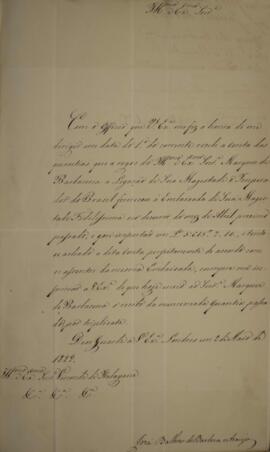 Illmo. e Exmo. Snr.
Com o Officio que V. Exa. me fez a honra de me
dirigir em data do 1º do corrente recebi a conta das
quantias que a rogo do Illmo. Exmo. Snr. Marquez de
Barbacena a Legação de Sua Magestade o Impera-
dor do Brasil forneceo á Embaixada de Sua Mages-
tade Fidelissima no do mez de Abril proximo
passado, e que importão em L. 2. 10, e tendo
achado a dita conta perfeitamente de accordo com
os assentos da mesma Embaixada,
a V. Exa. de que haja o Snr. Marquez
de Barbacena o recibo da mencionada quantia passa-
do por triplicata.
Deos Guarde a V. Exa. Londres em 2 de Maio de
1829.
Illmo. e Exmo. Snr. Visconde de Itabayana
&c. &c. &c.
José Balbino de Barboza e Araujo